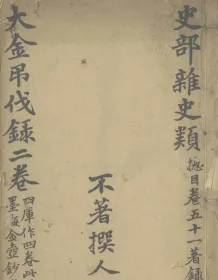 史部雜史類 揔目卷五十一著録
不著撰人
大金吊伐録二卷
四庫作四卷此
墨海金壺鈔